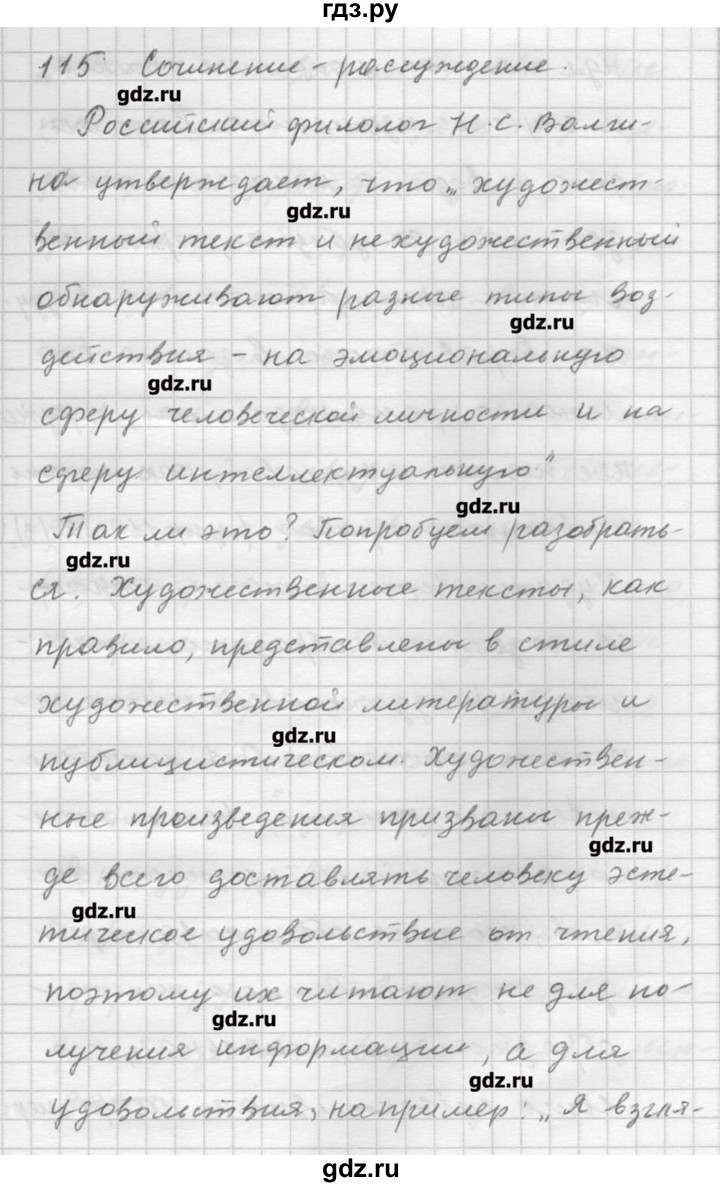 гдз.ру
115 Сочинение - рассуждение.
gdz.ru
Российский филолог Н. С. Валги-
на утверждает, что „художест-
gdz.ru
венный текст и нехудожественный
обнаруживают разные типы воз-
gdz.ru
действия - на эмоциональную
gdz.ru
сферу человеческой личности и на
сферу интеллектуальную“
gdz.ru
Так ли это? Попробуем разобрать-
gdz.ru
ся. Художественные тексты, как
правило, представлены в стиле
художественной литературы и
gdz.ru
публицистическом. Художествен-
ные произведения призваны преж-
gdz.ru
де всего доставлять человеку эсте-
gdz.ru
тическое удовольствие от чтения,
поэтому их читают не для по-
gdz.ru
лучения информации, а для
gdz.ru
удовольствия, например: „Я взгля-
gdz.ru